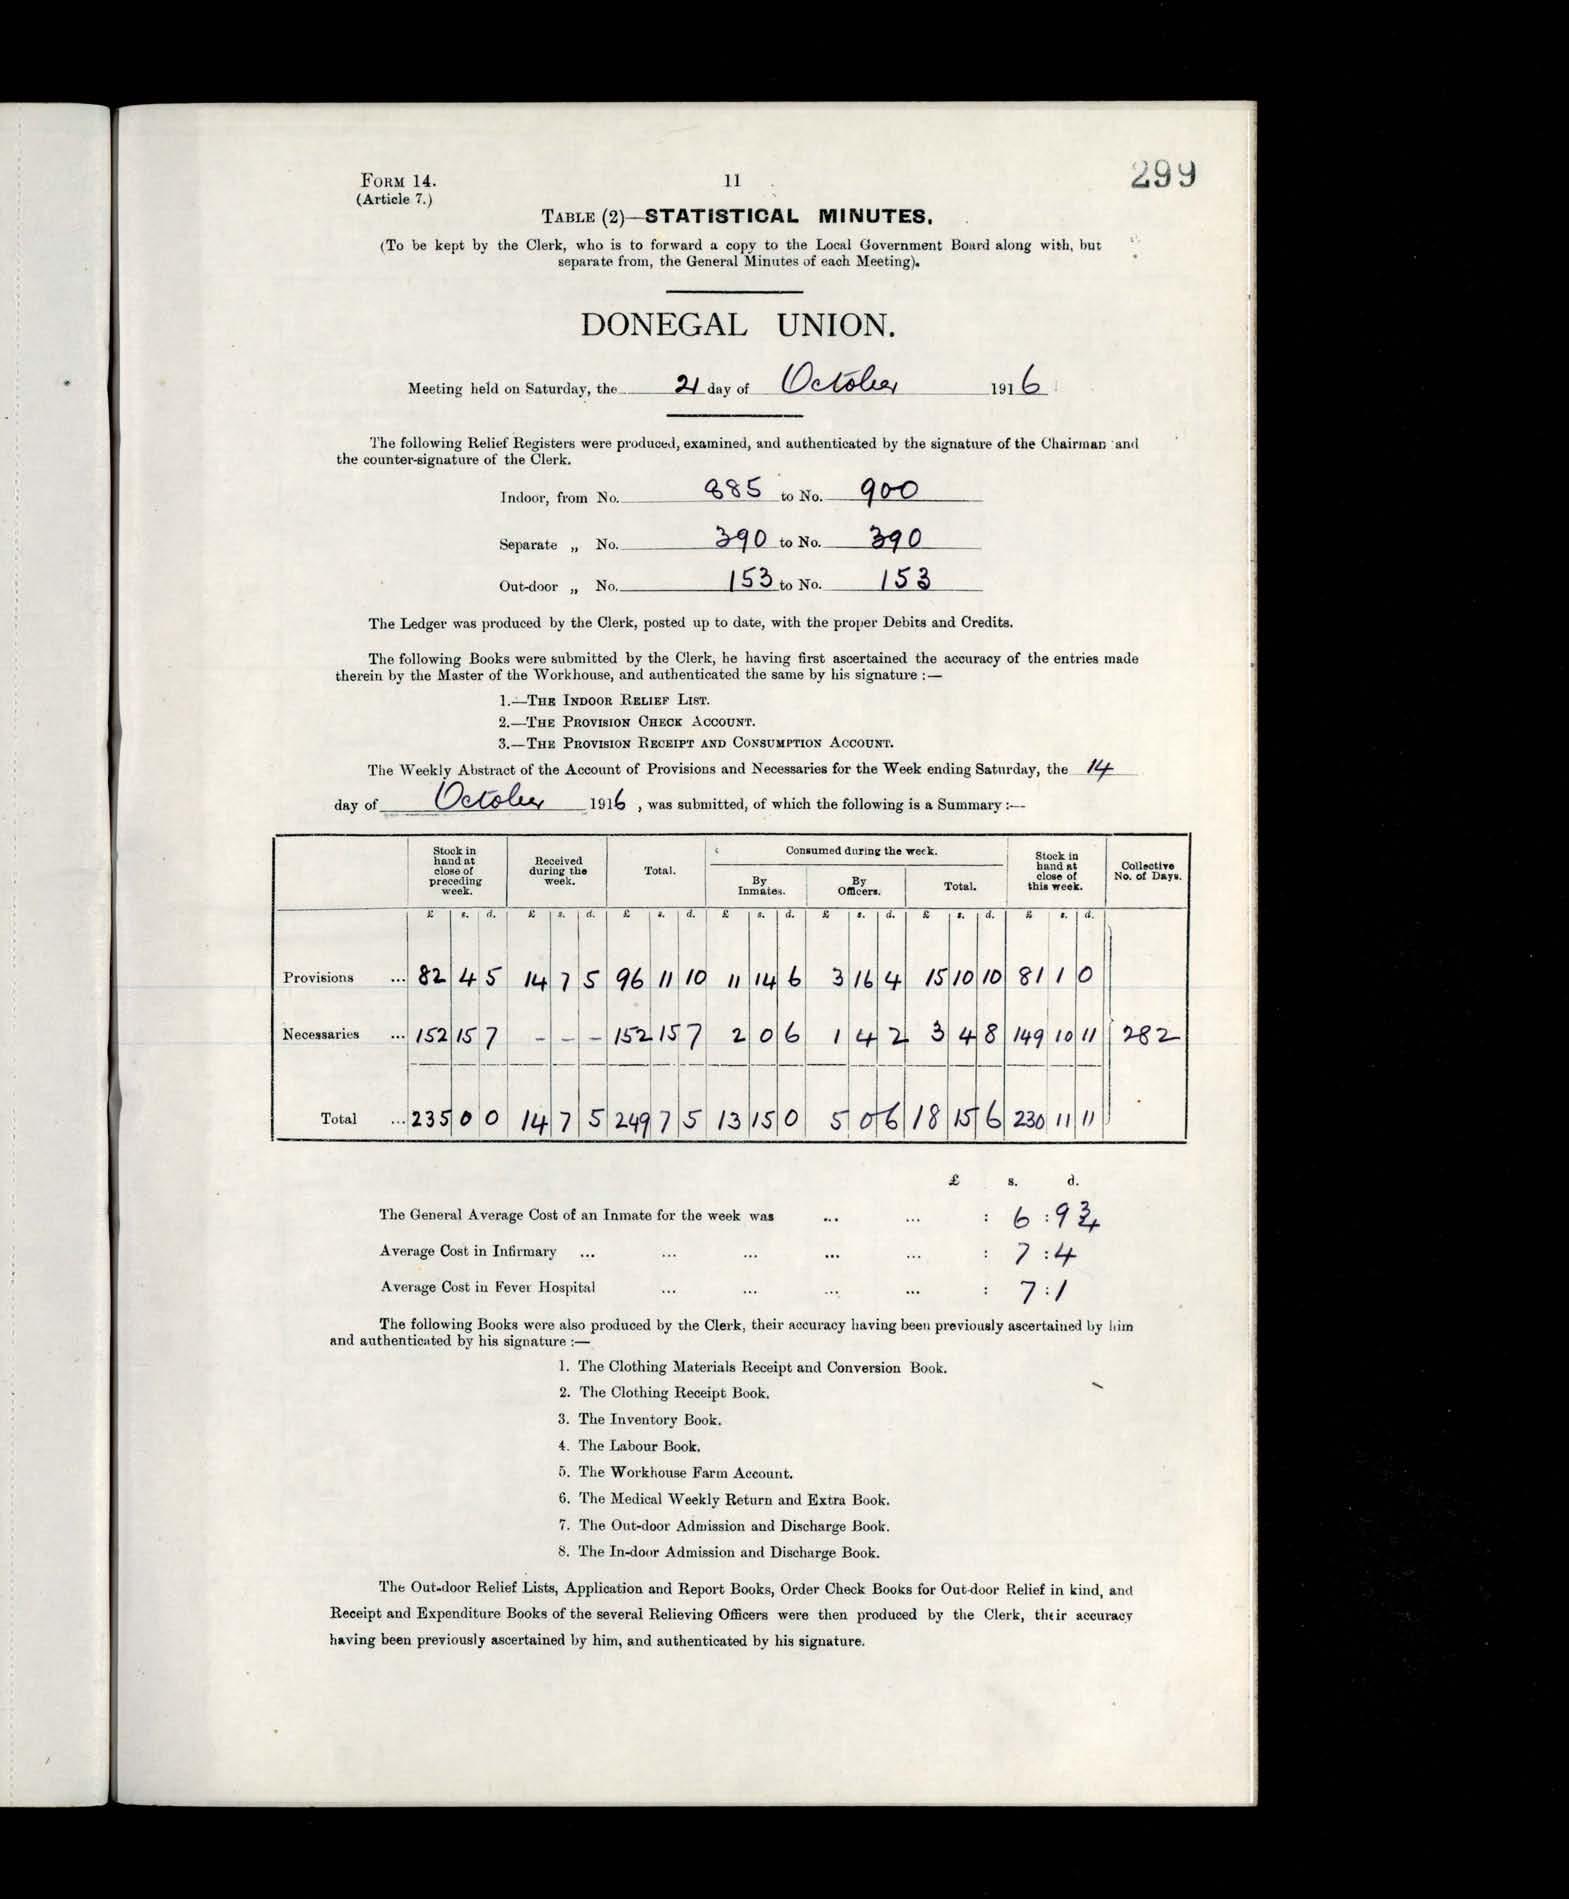 FORM 14.
11
299
(Article 7.)
TABLE (2)—STATISTICAL MINUTES.
(To be kept by the Clerk, who is to forward a copy to the Local Government Board along with, but
separate from, the General Minutes of each Meeting).
DONEGAL UNION.
Meeting held on Saturday, the 21 day of October 1916
The following Relief Registers were produced, examined, and authenticated by the signature of the Chairman and
the counter-signature of the Clerk.
Indoor, from No. 885 to No. 900
Separate „ No. 390 to No. 390
Out-door „ No. 153 to No. 153
The Ledger was produced by the Clerk, posted up to date, with the proper Debits and Credits.
The following Books were submitted by the Clerk, he having first ascertained the accuracy of the entries made
therein by the Master of the Workhouse, and authenticated the same by his signature :—
1.—THE INDOOR RELIEF LIST.
2.—THE PROVISION CHECK ACCOUNT.
3.—THE PROVISION RECEIPT AND CONSUMPTION ACCOUNT.
The Weekly Abstract of the Account of Provisions and Necessaries for the Week ending Saturday, the 14
day of October 1916 , was submitted, of which the following is a Summary :—
Stock in hand at close of preceding week. Received during the week. Total. Consumed during the week. Stock in hand at close of this week. Collective No. of Days.
By Inmates. By Officers. Total.
£ s. d. £ s. d. £ s. d. £ s. d. £ s. d. £ s. d. £ s. d.
Provisions ... 82 4 5 14 7 5 96 11 10 11 14 6 3 16 4 15 10 10 81 1 0
Necessaries ... 152 15 7 - - - 152 15 7 2 0 6 1 4 2 3 4 8 149 10 11 282
Total ... 235 0 0 14 7 5 249 7 5 13 15 0 5 0 6 18 15 6 230 11 11
£ s. d.
The General Average Cost of an Inmate for the week was ... ... : 6 : 9 3/4
Average Cost in Infirmary ... ... ... ... ... : 7 : 4
Average Cost in Fever Hospital ... ... ... ... : 7 : 1
The following Books were also produced by the Clerk, their accuracy having been previously ascertained by him
and authenticated by his signature :—
1. The Clothing Materials Receipt and Conversion Book.
2. The Clothing Receipt Book.
3. The Inventory Book.
4. The Labour Book.
5. The Workhouse Farm Account.
6. The Medical Weekly Return and Extra Book.
7. The Out-door Admission and Discharge Book.
8. The In-door Admission and Discharge Book.
The Out-door Relief Lists, Application and Report Books, Order Check Books for Out-door Relief in kind, and
Receipt and Expenditure Books of the several Relieving Officers were then produced by the Clerk, their accuracy
having been previously ascertained by him, and authenticated by his signature.